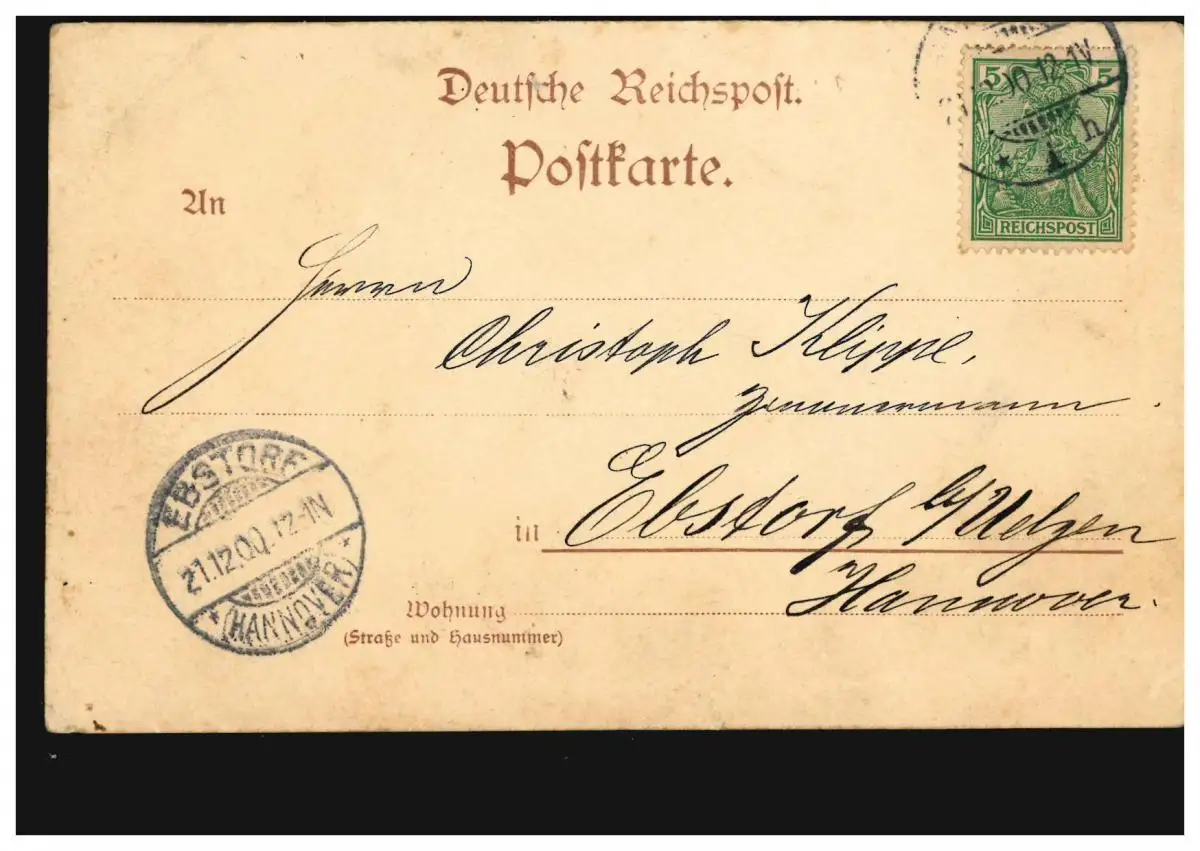 Deutsche Reichspost.
Postkarte.
5 5
REICHSPOST
12-1V
* 1 h
An
Herrn
Christoph Klippe,
Zimmermann.
in Ebstorf b/Uelzen
Hannover.
Wohnung
(Straße und Hausnummer)
EBSTORF
21.12.00. 12-1N
* (HANNOVER) *